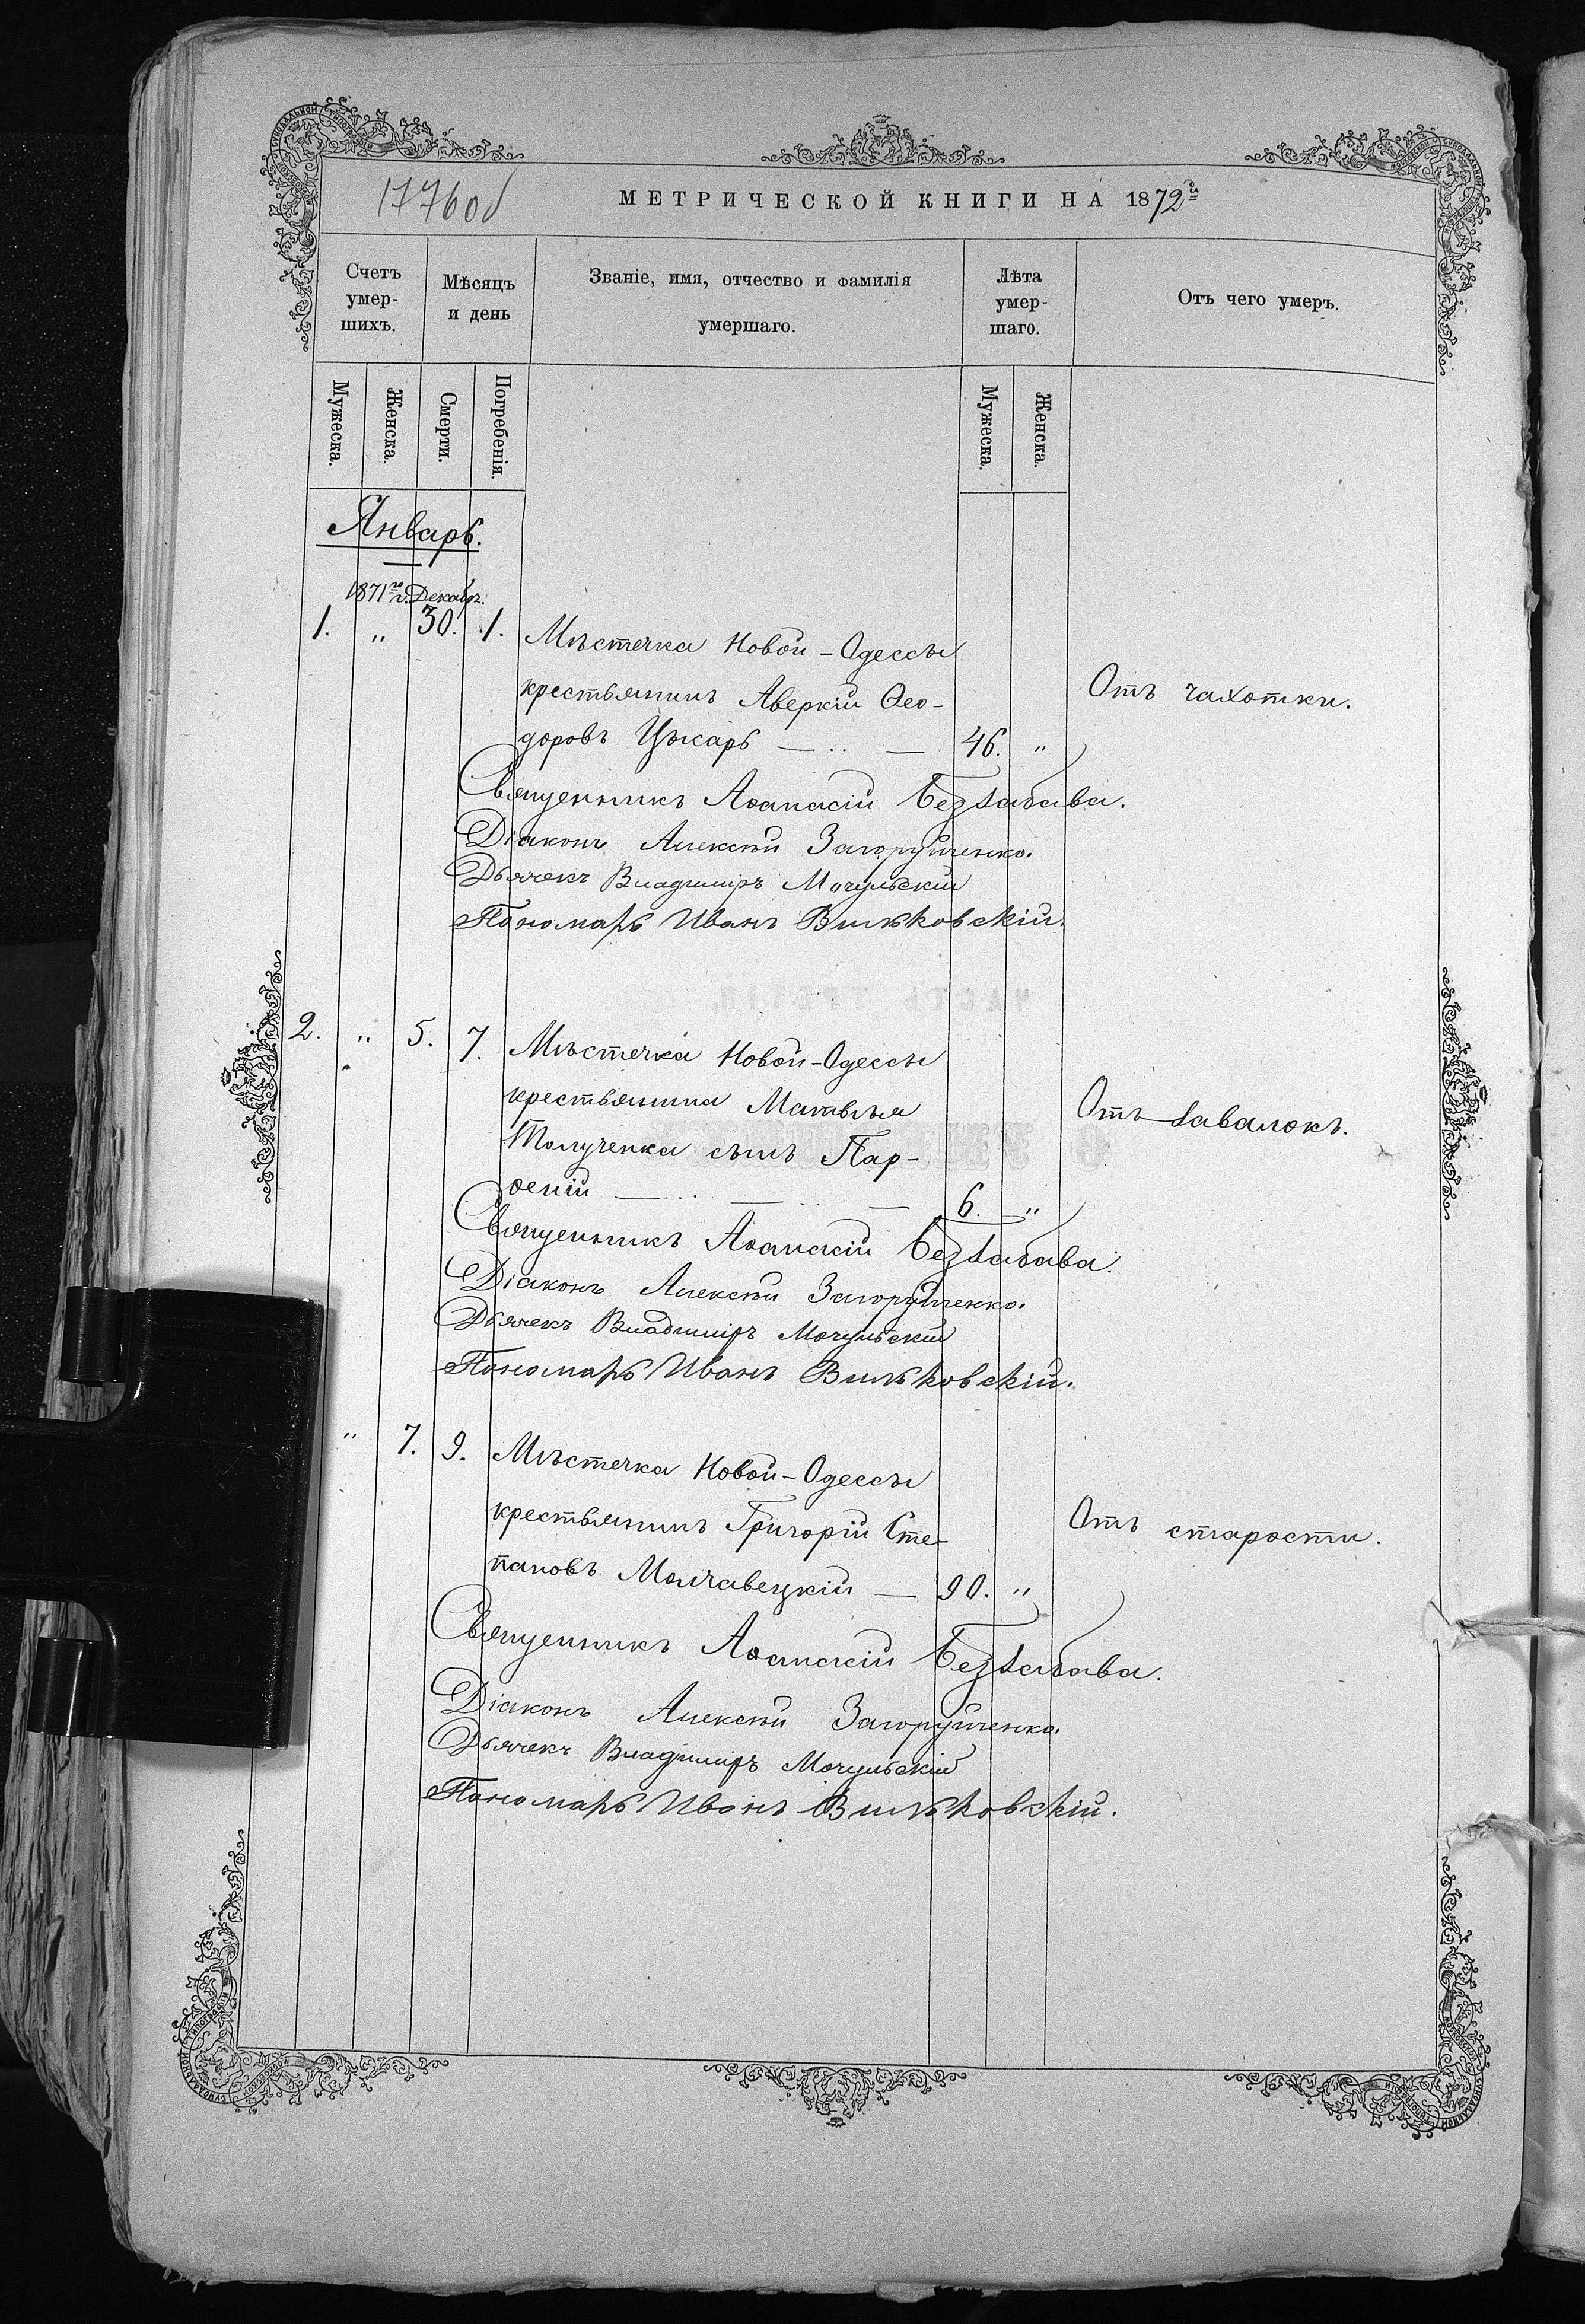 1776об
МЕТРИЧЕСКОЙ КНИГИ НА 1872й
Счетъ умер-шихъ.
Мѣсяцъ и день
Званіе, имя, отчество и фамилія умершаго.
Лѣта умер-шаго.
Отъ чего умеръ.
Мужеска.
Женска.
Смерти.
Погребенія.
Мужеска.
Женска.
Январь.
1871го г. Декабр.
1. " 30. 1. Мѣстечка Новой-Одессы
крестьянинъ Аверкій Ѳео-
Отъ чахотки.
доровъ Цыкарь — .. — 46. "
Священникъ Аѳанасій Беззабава.
Діаконъ Алексѣй Загоруйченко.
Дьячекъ Владиміръ Мочульскій
Пономарь Иванъ Вильковскій.
2. " 5. 7. Мѣстечка Новой-Одессы
крестьянина Матвѣя
Отъ завалокъ.
Толученка сынъ Пар-
ѳеній — .. — .. — 6. "
Священникъ Аѳанасій Беззабава.
Діаконъ Алексѣй Загоруйченко.
Дьячекъ Владиміръ Мочульскій
Пономарь Иванъ Вильковскій.
" 7. 9. Мѣстечка Новой-Одессы
крестьянинъ Григорій Сте-
Отъ старости.
пановъ Молчавецкій — 90. "
Священникъ Аѳанасій Беззабава.
Діаконъ Алексѣй Загоруйченко.
Дьячекъ Владиміръ Мочульскій
Пономарь Иванъ Вильковскій.